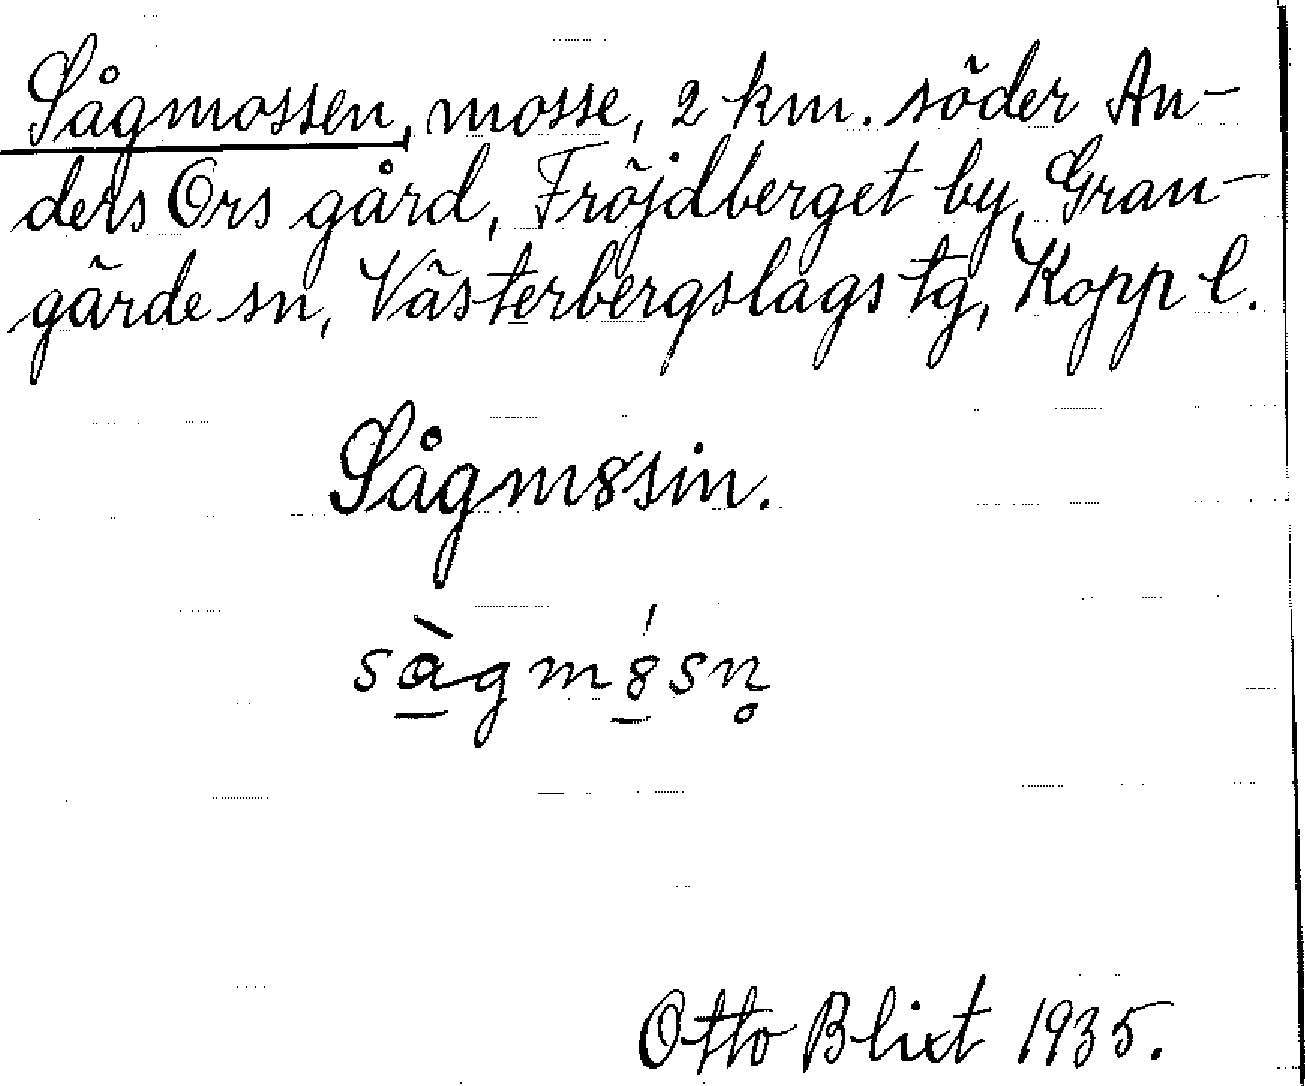 Sågmossen, mosse, 2 km. söder An-
ders Ors gård, Fröjdberget by, Gran-
gärde sn, Västerbergslags tg, Kopp l.
Sågm8sin.
sàgm8́sn̥
Otto Blixt 1935.